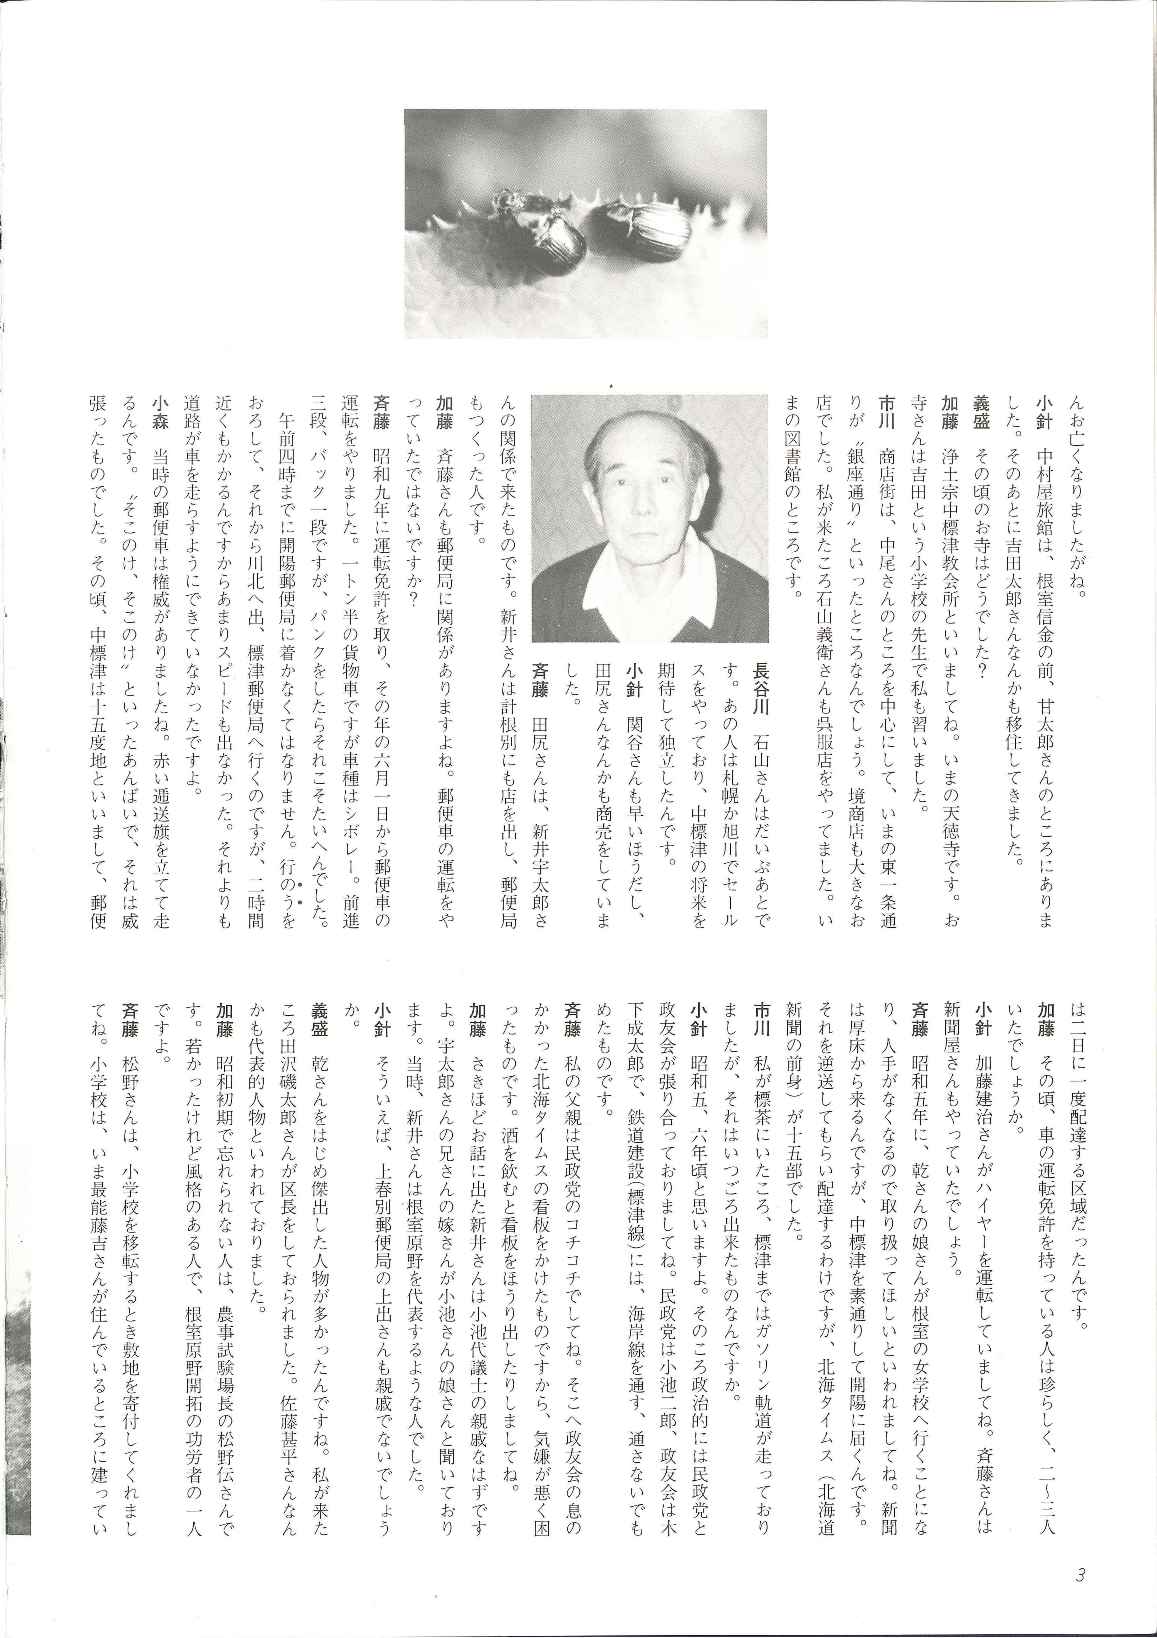 んお亡くなりましたがね。
小針　中村屋旅館は、根室信金の前、甘太郎さんのところにありま
した。そのあとに吉田太郎さんなんかも移住してきました。
義盛　その頃のお寺はどうでした？
加藤　浄土宗中標津教会所といいましてね。いまの天徳寺です。お
寺さんは吉田という小学校の先生で私も習いました。
市川　商店街は、中尾さんのところを中心にして、いまの東一条通
りが〝銀座通り〟といったところなんでしょう。境商店も大きなお
店でした。私が来たころ石山義衛さんも呉服店をやってました。い
まの図書館のところです。
長谷川　石山さんはだいぶあとで
す。あの人は札幌か旭川でセール
スをやっており、中標津の将来を
期待して独立したんです。
小針　関谷さんも早いほうだし、
田尻さんなんかも商売をしていま
した。
斉藤　田尻さんは、新井宇太郎さ
んの関係で来たものです。新井さんは計根別にも店を出し、郵便局
もつくった人です。
加藤　斉藤さんも郵便局に関係がありますよね。郵便車の運転をや
っていたではないですか？
斉藤　昭和九年に運転免許を取り、その年の六月一日から郵便車の
運転をやりました。一トン半の貨物車ですが車種はシボレー。前進
三段、バック一段ですが、パンクをしたらそれこそたいへんでした。
　午前四時までに開陽郵便局に着かなくてはなりません。行のうを
おろして、それから川北へ出、標津郵便局へ行くのですが、二時間
近くもかかるんですからあまりスピードも出なかった。それよりも
道路が車を走らすようにできていなかったですよ。
小森　当時の郵便車は権威がありましたね。赤い逓送旗を立てて走
るんです。〝そこのけ、そこのけ〟といったあんばいで、それは威
張ったものでした。その頃、中標津は十五度地といいまして、郵便
は二日に一度配達する区域だったんです。
加藤　その頃、車の運転免許を持っている人は珍らしく、二〜三人
いたでしょうか。
小針　加藤建治さんがハイヤーを運転していましてね。斉藤さんは
新聞屋さんもやっていたでしょう。
斉藤　昭和五年に、乾さんの娘さんが根室の女学校へ行くことにな
り、人手がなくなるので取り扱ってほしいといわれましてね。新聞
は厚床から来るんですが、中標津を素通りして開陽に届くんです。
それを逆送してもらい配達するわけですが、北海タイムス（北海道
新聞の前身）が十五部でした。
市川　私が標茶にいたころ、標津まではガソリン軌道が走っており
ましたが、それはいつごろ出来たものなんですか。
小針　昭和五、六年頃と思いますよ。そのころ政治的には民政党と
政友会が張り合っておりましてね。民政党は小池二郎、政友会は木
下成太郎で、鉄道建設（標津線）には、海岸線を通す、通さないでも
めたものです。
斉藤　私の父親は民政党のコチコチでしてね。そこへ政友会の息の
かかった北海タイムスの看板をかけたものですから、気嫌が悪く困
ったものです。酒を飲むと看板をほうり出したりしましてね。
加藤　さきほどお話に出た新井さんは小池代議士の親戚なはずです
よ。宇太郎さんの兄さんの嫁さんが小池さんの娘さんと聞いており
ます。当時、新井さんは根室原野を代表するような人でした。
小針　そういえば、上春別郵便局の上出さんも親戚でないでしょう
か。
義盛　乾さんをはじめ傑出した人物が多かったんですね。私が来た
ころ田沢磯太郎さんが区長をしておられました。佐藤甚平さんなん
かも代表的人物といわれておりました。
加藤　昭和初期で忘れられない人は、農事試験場長の松野伝さんで
す。若かったけれど風格のある人で、根室原野開拓の功労者の一人
ですよ。
斉藤　松野さんは、小学校を移転するとき敷地を寄付してくれまし
てね。小学校は、いま最能藤吉さんが住んでいるところに建ってい
3